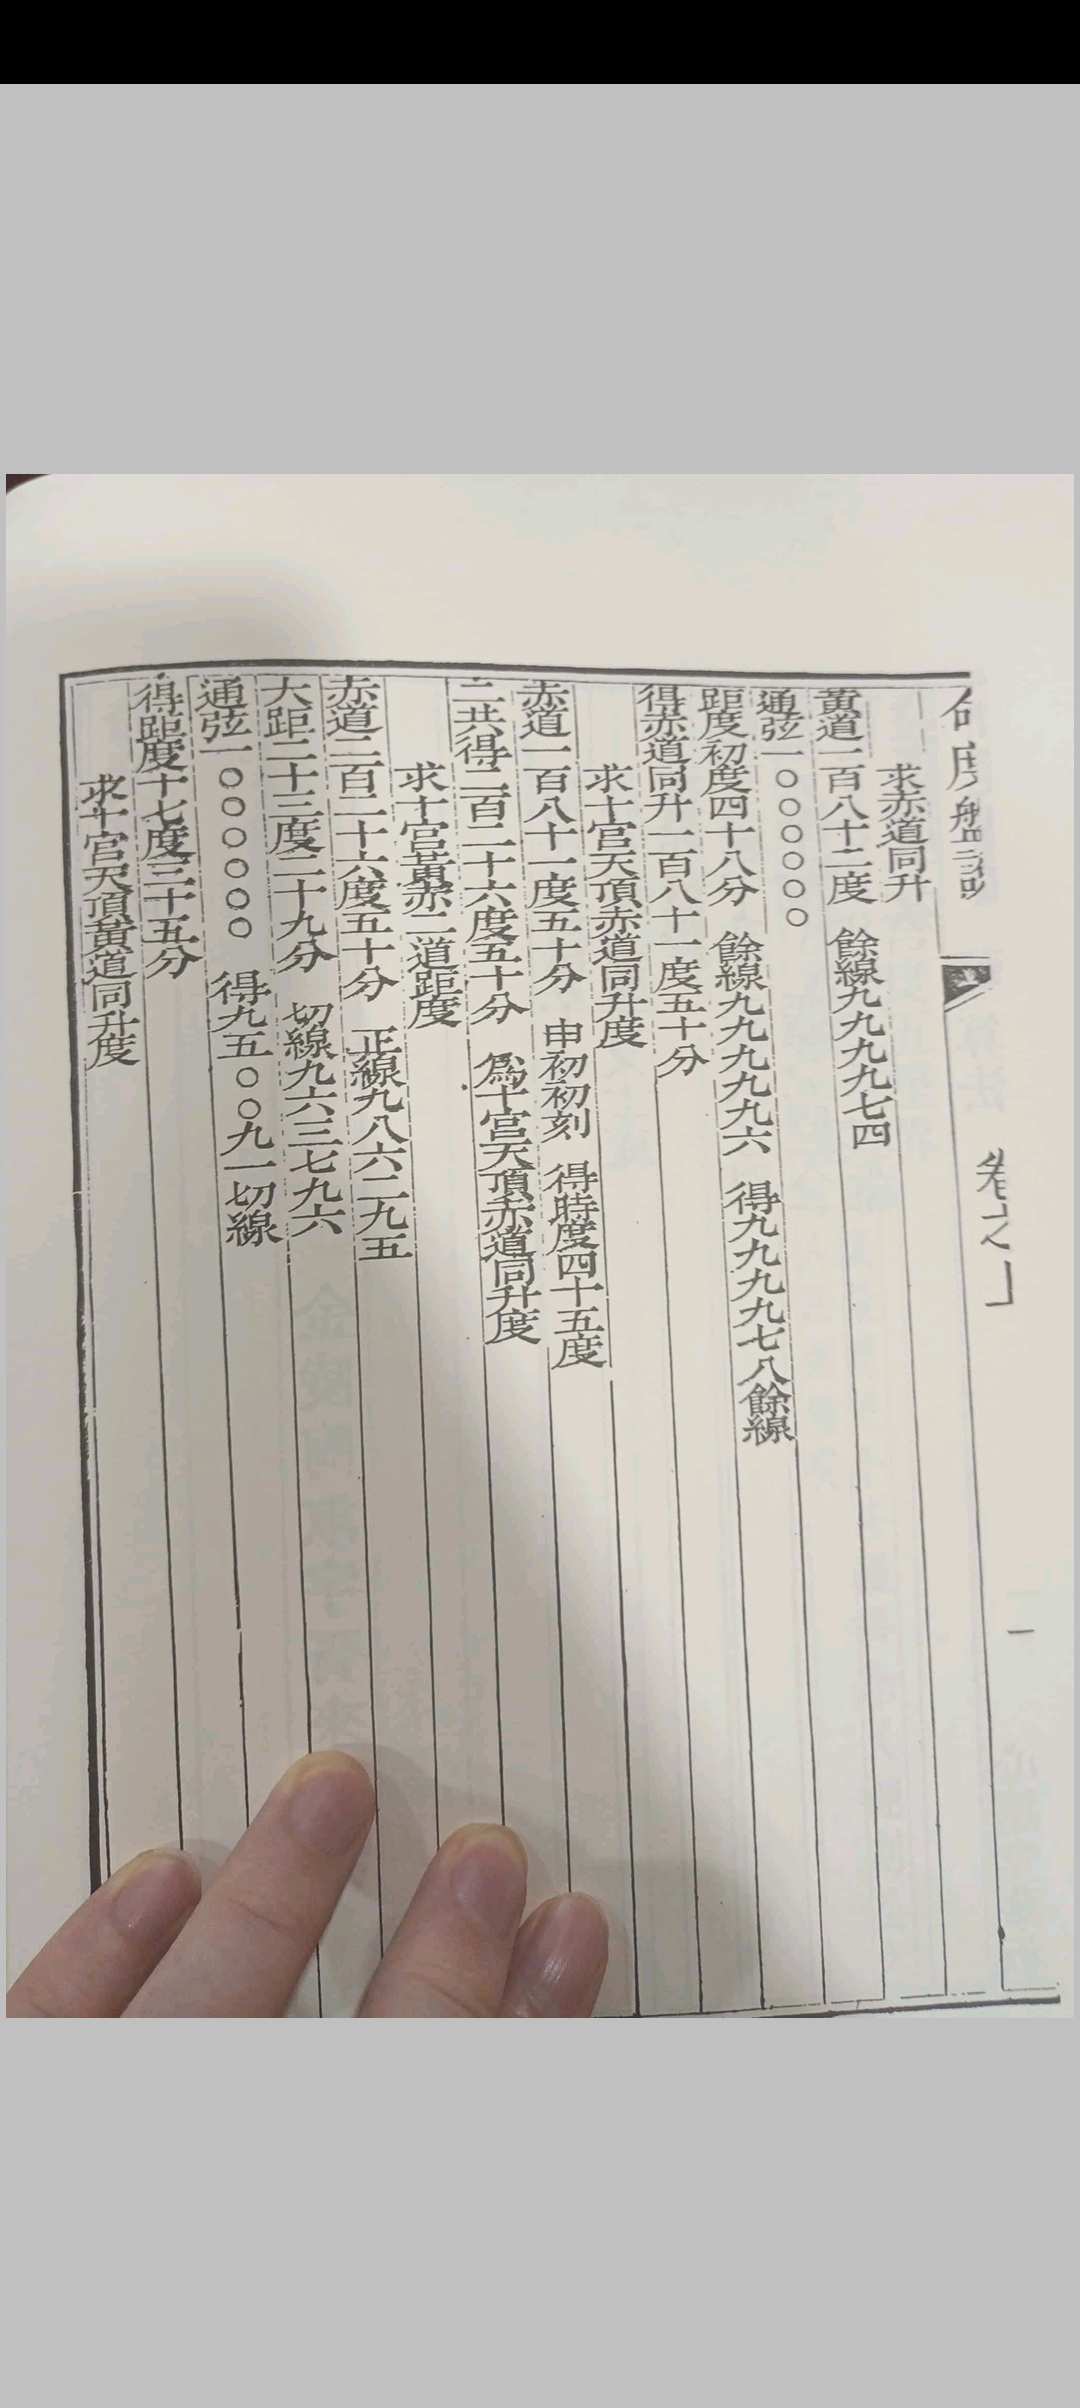 卷之上
一
求赤道同升
黃道一百八十二度 餘線九九九九七四
通弦一〇〇〇〇〇〇
距度初度四十八分 餘線九九九九九六 得九九九九七八餘線
得赤道同升一百八十一度五十分
求十宮天頂赤道同升度
赤道一百八十一度五十分 申初初刻 得時度四十五度
二共得二百二十六度五十分 為十宮天頂赤道同升度
求十宮黃赤二道距度
赤道二百二十六度五十分 正線九八六二九五
大距二十三度二十九分 切線九六三七九六
通弦一〇〇〇〇〇〇 得九五〇〇九一切線
得距度十七度三十五分
求十宮天頂黃道同升度